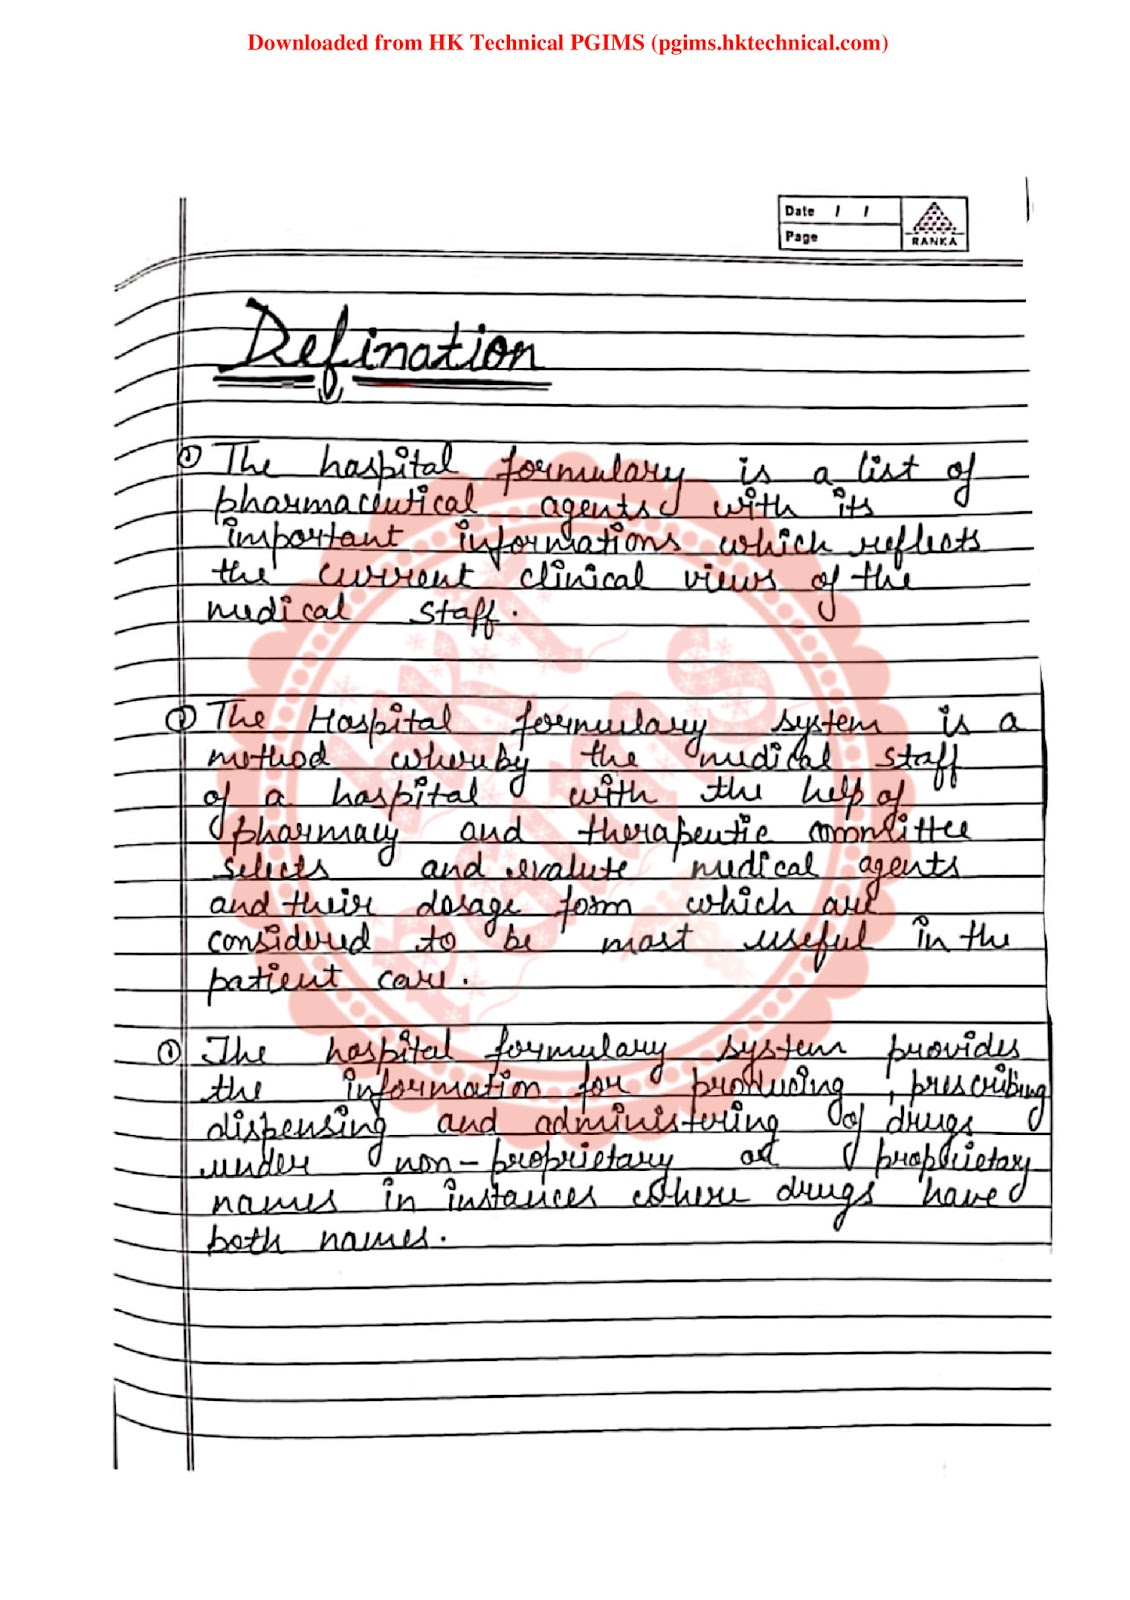 Downloaded from HK Technical PGIMS (pgims.hktechnical.com)
Date / /
Page
RANKA
Defination
The hospital formulary is a list of
pharmaceutical agents with its
important informations which reflects
the current clinical views of the
medical staff.
The Hospital formulary system is a
method whereby the medical staff
of a hospital with the help of
pharmacy and therapeutic committee
selects and evalute medical agents
and their dosage form which are
considered to be most useful in the
patient care.
The hospital formulary system provides
the information for producing, prescribing
dispensing and administering of drugs
under non-proprietary or proprietary
names in instances where drugs have
both names.
HKT
PGIMS